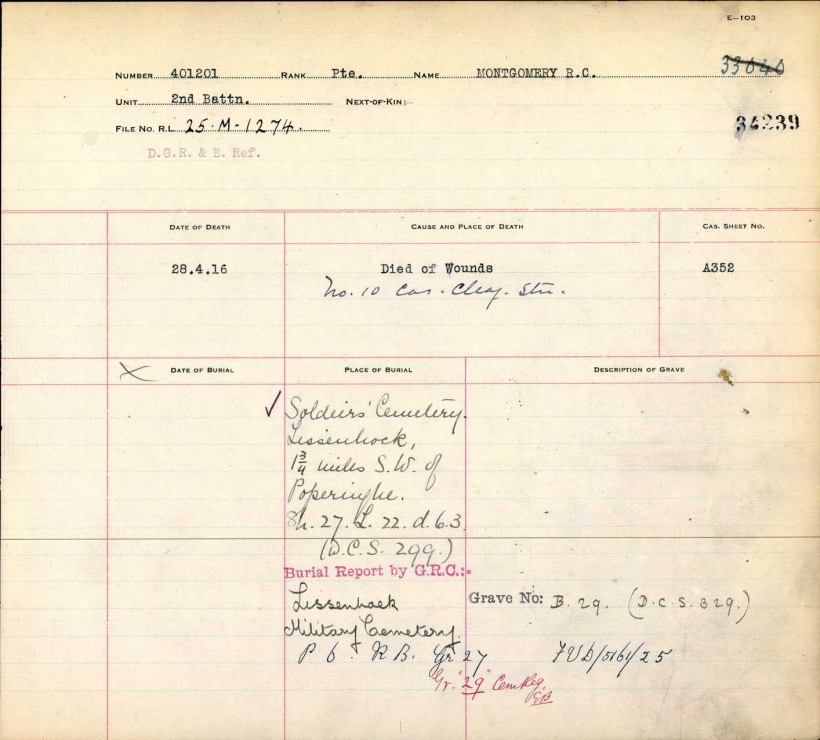 E-103
NUMBER 401201 RANK Pte. NAME MONTGOMERY R.C. 33040
UNIT 2nd Battn. NEXT-OF-KIN:
34239
FILE NO. R.L. 25-M-1274.
D.G.R. & E. Ref.
DATE OF DEATH CAUSE AND PLACE OF DEATH CAS. SHEET NO.
28.4.16 Died of Wounds A352
No. 10 Cas. Cleag. Stn.
X DATE OF BURIAL PLACE OF BURIAL DESCRIPTION OF GRAVE
✓ Soldeirs' Cemetery.
Lissenhock,
1 3/4 miles S.W. of
Poperinghe.
Sh. 27. L. 22. d. 6.3.
(D.C.S. 299.)
Burial Report by G.R.C.:-
Lissenhoek Grave No: B. 29. (D.C.S. 329.)
Military Cemetery.
P 6. R B. Gr 27
Gr. "29" Cem Reg.